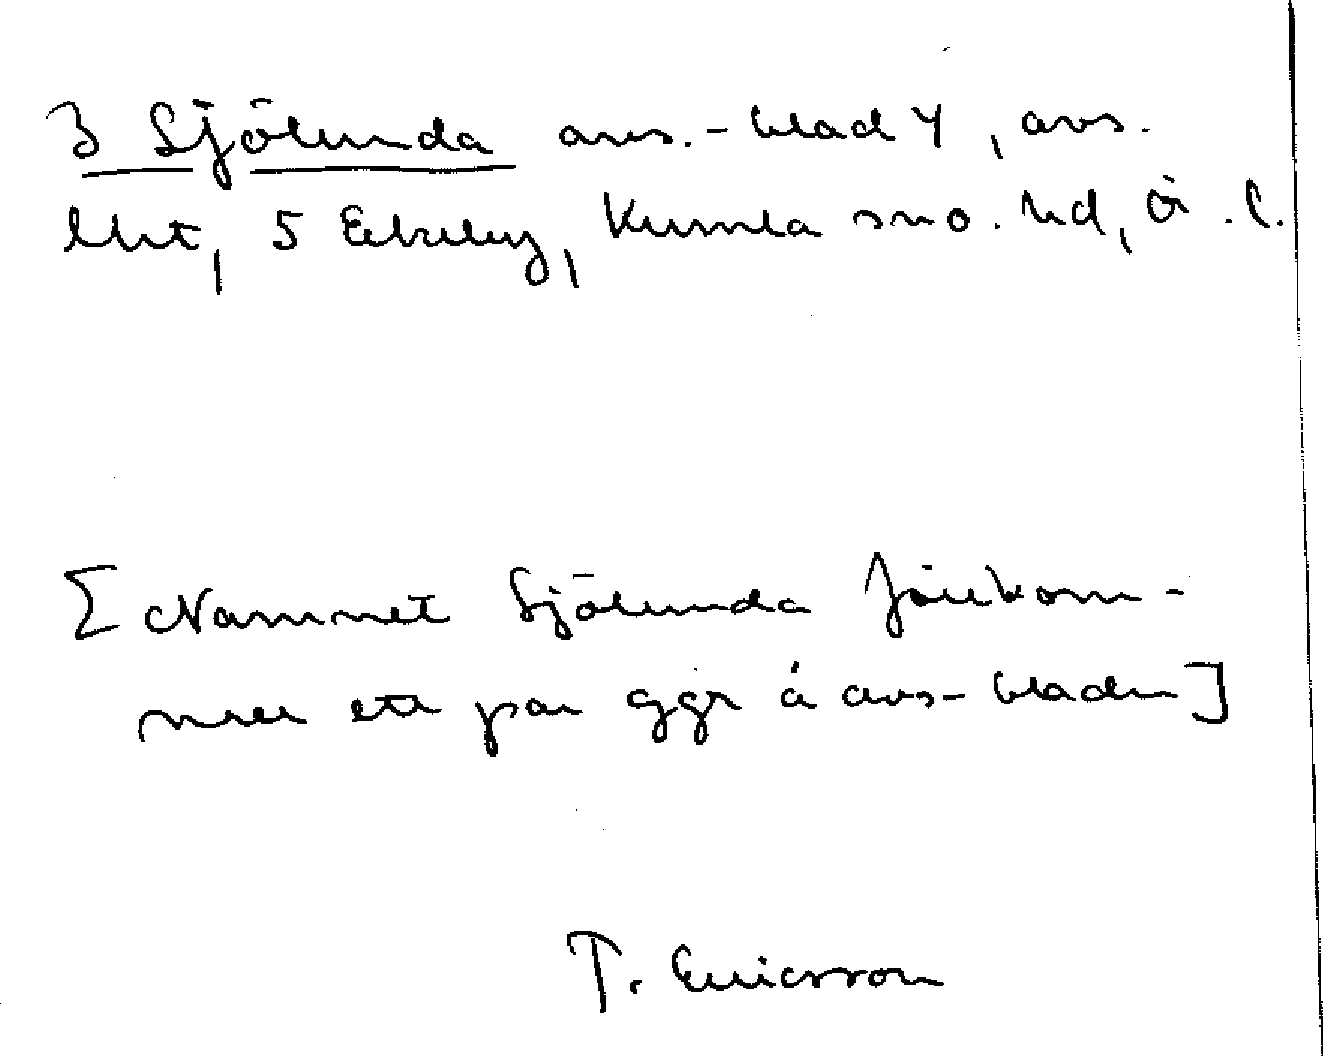 3 Sjölunda avs.-blad 4, avs.
lht, 5 Ekeby, Kumla sno. hd, Ö.l.
[Namnet Sjölunda förekom-
mer ett par ggr å avs-bladen]
T. Ericsson